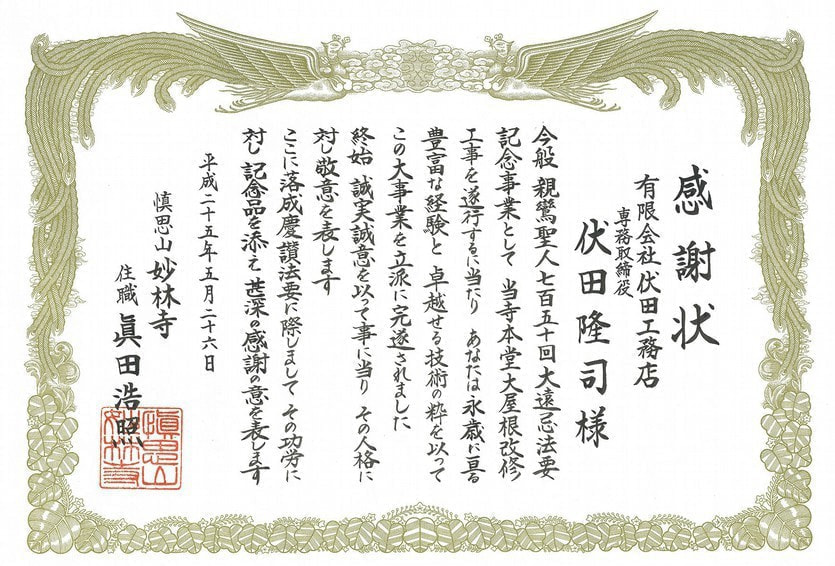 感謝状
有限会社 伏田工務店
専務取締役
伏田隆司様
今般 親鸞聖人七百五十回大遠忌法要
記念事業として 当寺本堂大屋根改修
工事を遂行するに当たり あなたは永歳に亘る
豊富な経験と 卓越せる技術の粋を以って
この大事業を立派に完遂されました
終始 誠実誠意を以って事に当り その人格に
対し敬意を表します
ここに落成慶讃法要に際しまして その功労に
対し 記念品を添え 甚深の感謝の意を表します
平成二十五年五月二十六日
慎思山 妙林寺
住職 眞田浩照
慎思山
妙林寺